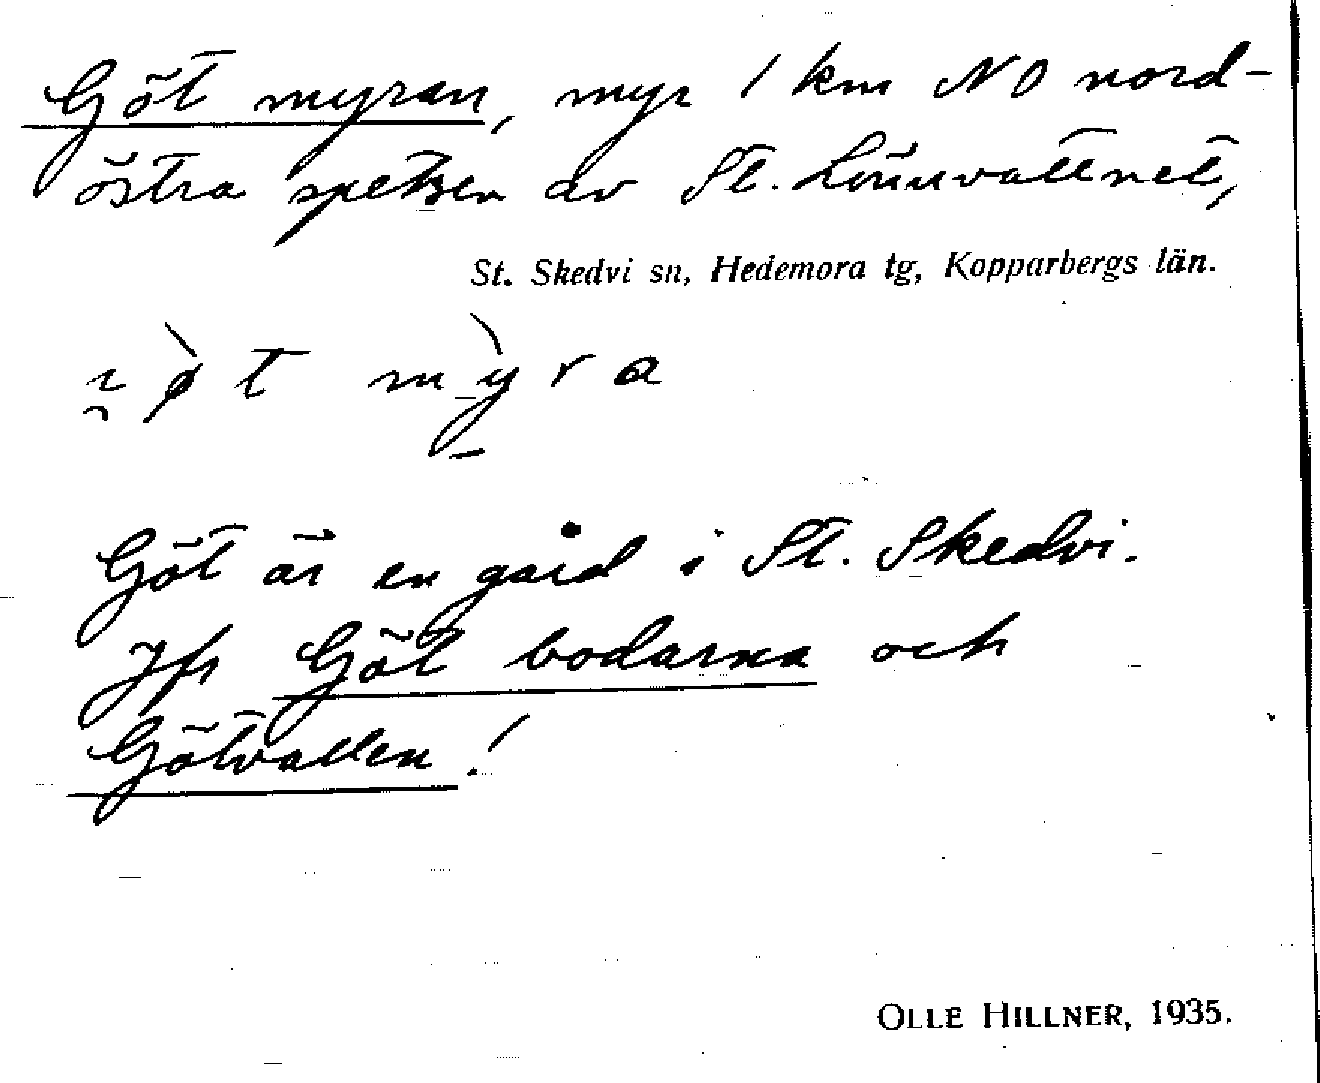 Göt myran, myr 1 km NO nord-
östra spetsen av St. Lönnvattnet,
St. Skedvi sn, Hedemora tg, Kopparbergs län.
myra
Göt är en gård i St. Skedvi.
Jfr Göt bodarna och
Götvallen!
OLLE HILLNER, 1935.